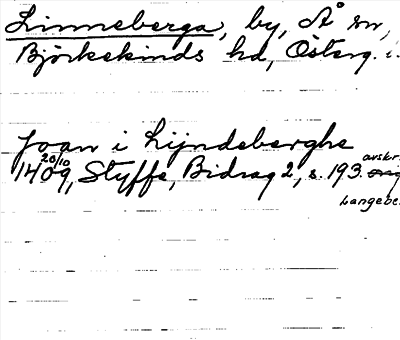 Linneberga, by, Å sn,
Björkekinds hd, Österg.
Joan i Lijndeberghe
20/10 avskr.
1409, Styffe, Bidrag 2, s. 193.
Langebe